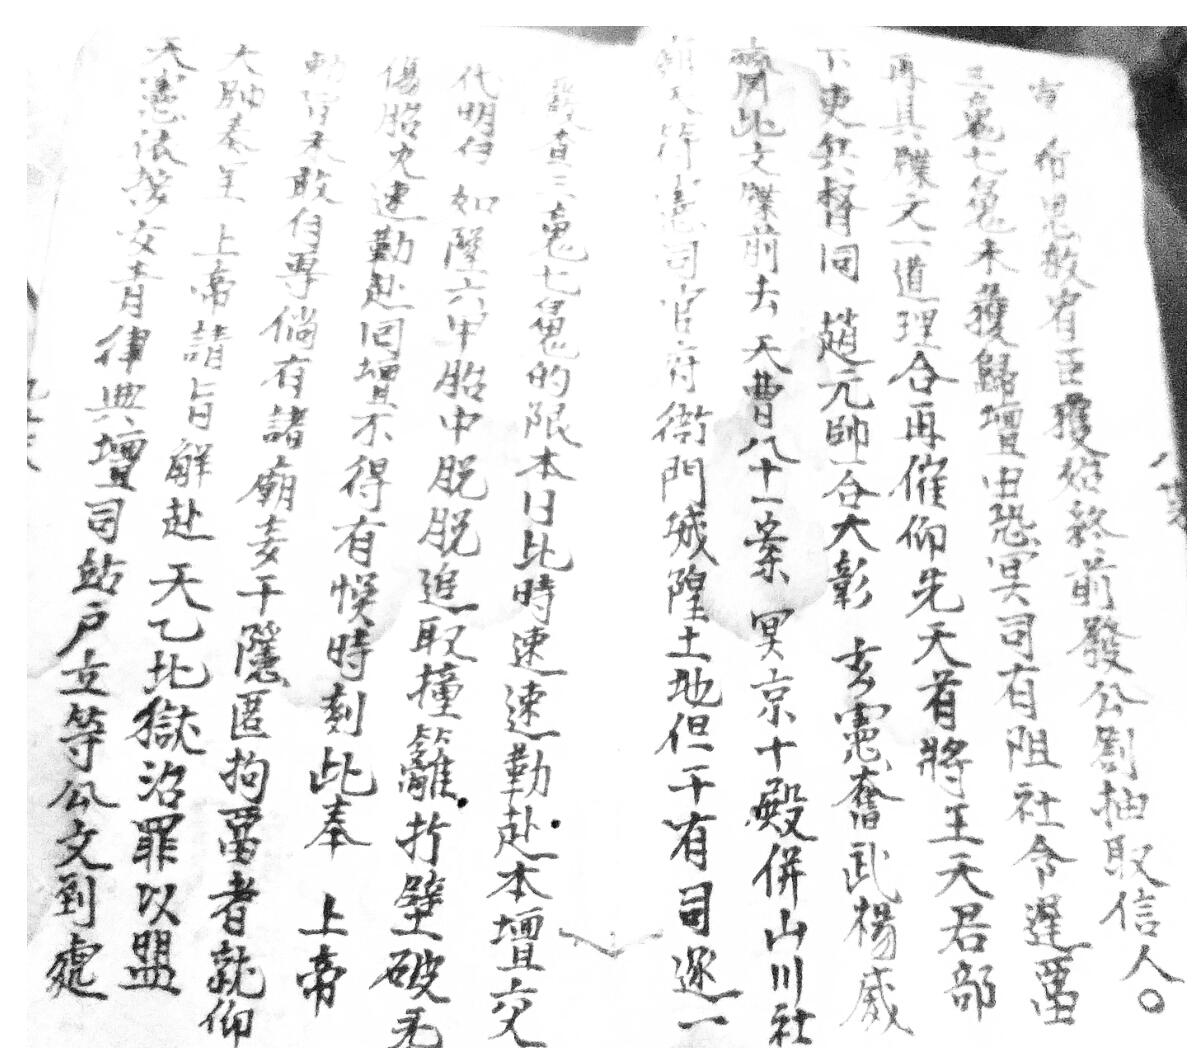 布恩赦宥臣獲 前發公劄抽取信人○
三魂七魄未獲歸壇由恐冥司有阻社令遲
再具牒文一道理合再催仰先天首將王天君部
下吏兵督同趙元帥合大彰玄憲奮武楊威
齊此文牒前去天曹八十一案冥京十殿併山川社
廟天符憲司官府衙門城隍土地但干有司逐一
查三魂七魄的限本日比時速速勒赴本壇交
代明白如墮六甲胎中脫脫追取撞籬打壁破
傷胎 速勒赴回壇不得有悞時刻此奉上帝
勅旨未敢自專倘有諸廟妄干隱匿拘留者就仰
大帥奏至上帝請旨解赴天乙北獄治罪以盟
天憲依 女青律典壇司站戶立等公文到處